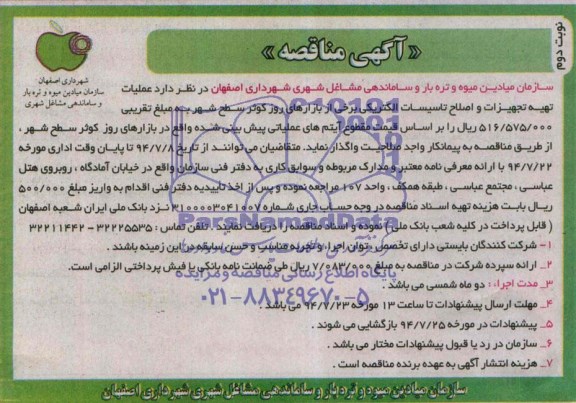 نوبت دوم
« آگهی مناقصه »
شهرداری اصفهان
سازمان میادین میوه و تره بار
و ساماندهی مشاغل شهری
سازمان میادین میوه و تره بار و ساماندهی مشاغل شهری شهرداری اصفهان در نظر دارد عملیات
تهیه تجهیزات و اصلاح تاسیسات الکتریکی برخی از بازارهای روز کوثر سطح شهر به مبلغ تقریبی
۵۱۶/۵۷۵/۰۰۰ ریال را بر اساس قیمت مقطوع آیتم های عملیاتی پیش بینی شده واقع در بازارهای روز کوثر سطح شهر ،
از طریق مناقصه به پیمانکار واجد صلاحیت واگذار نماید. متقاضیان می توانند از تاریخ ۹۴/۷/۸ تا پایان وقت اداری مورخه
۹۴/۷/۲۲ با ارائه معرفی نامه معتبر و مدارک مربوطه و سوابق کاری به دفتر فنی سازمان واقع در خیابان آمادگاه ، روبروی هتل
عباسی ، مجتمع عباسی ، طبقه همکف ، واحد ۱۰۷ مراجعه نموده و پس از اخذ تاییدیه دفتر فنی اقدام به واریز مبلغ ۵۰۰/۰۰۰
ریال بابت هزینه تهیه اسناد مناقصه در وجه حساب جاری شماره ۳۱۰۰۰۰۳۰۴۱۰۰۷ نزد بانک ملی ایران شعبه اصفهان
( قابل پرداخت در کلیه شعب بانک ملی ) نموده و اسناد مناقصه را دریافت نمایند . تلفن تماس : ۳۲۲۲۵۵۳۵ - ۳۲۲۱۱۴۴۲
۱- شرکت کنندگان بایستی دارای تخصص ، توان اجرا، و تجربه مناسب و حسن سابقه در این زمینه باشند .
۲_ ارائه سپرده شرکت در مناقصه به مبلغ ۷/۰۸۳/۰۰۰ ریال طی ضمانت نامه بانکی یا فیش پرداختی الزامی است.
۳_ مدت اجراء : دو ماه شمسی می باشد .
۴_ مهلت ارسال پیشنهادات تا ساعت ۱۳ مورخه ۹۴/۷/۲۳ می باشد .
۵_ پیشنهادات در مورخه ۹۴/۷/۲۵ بازگشایی می شوند .
۶_ سازمان در رد یا قبول پیشنهادات مختار می باشد .
۷_ هزینه انتشار آگهی به عهده برنده مناقصه است .
سازمان میادین میوه و تره بار و ساماندهی مشاغل شهری شهرداری اصفهان
ParsNamadData
پایگاه اطلاع رسانی مناقصه و مزایده
۰۲۱-۸۸۳۴۹۶۷۰-۵